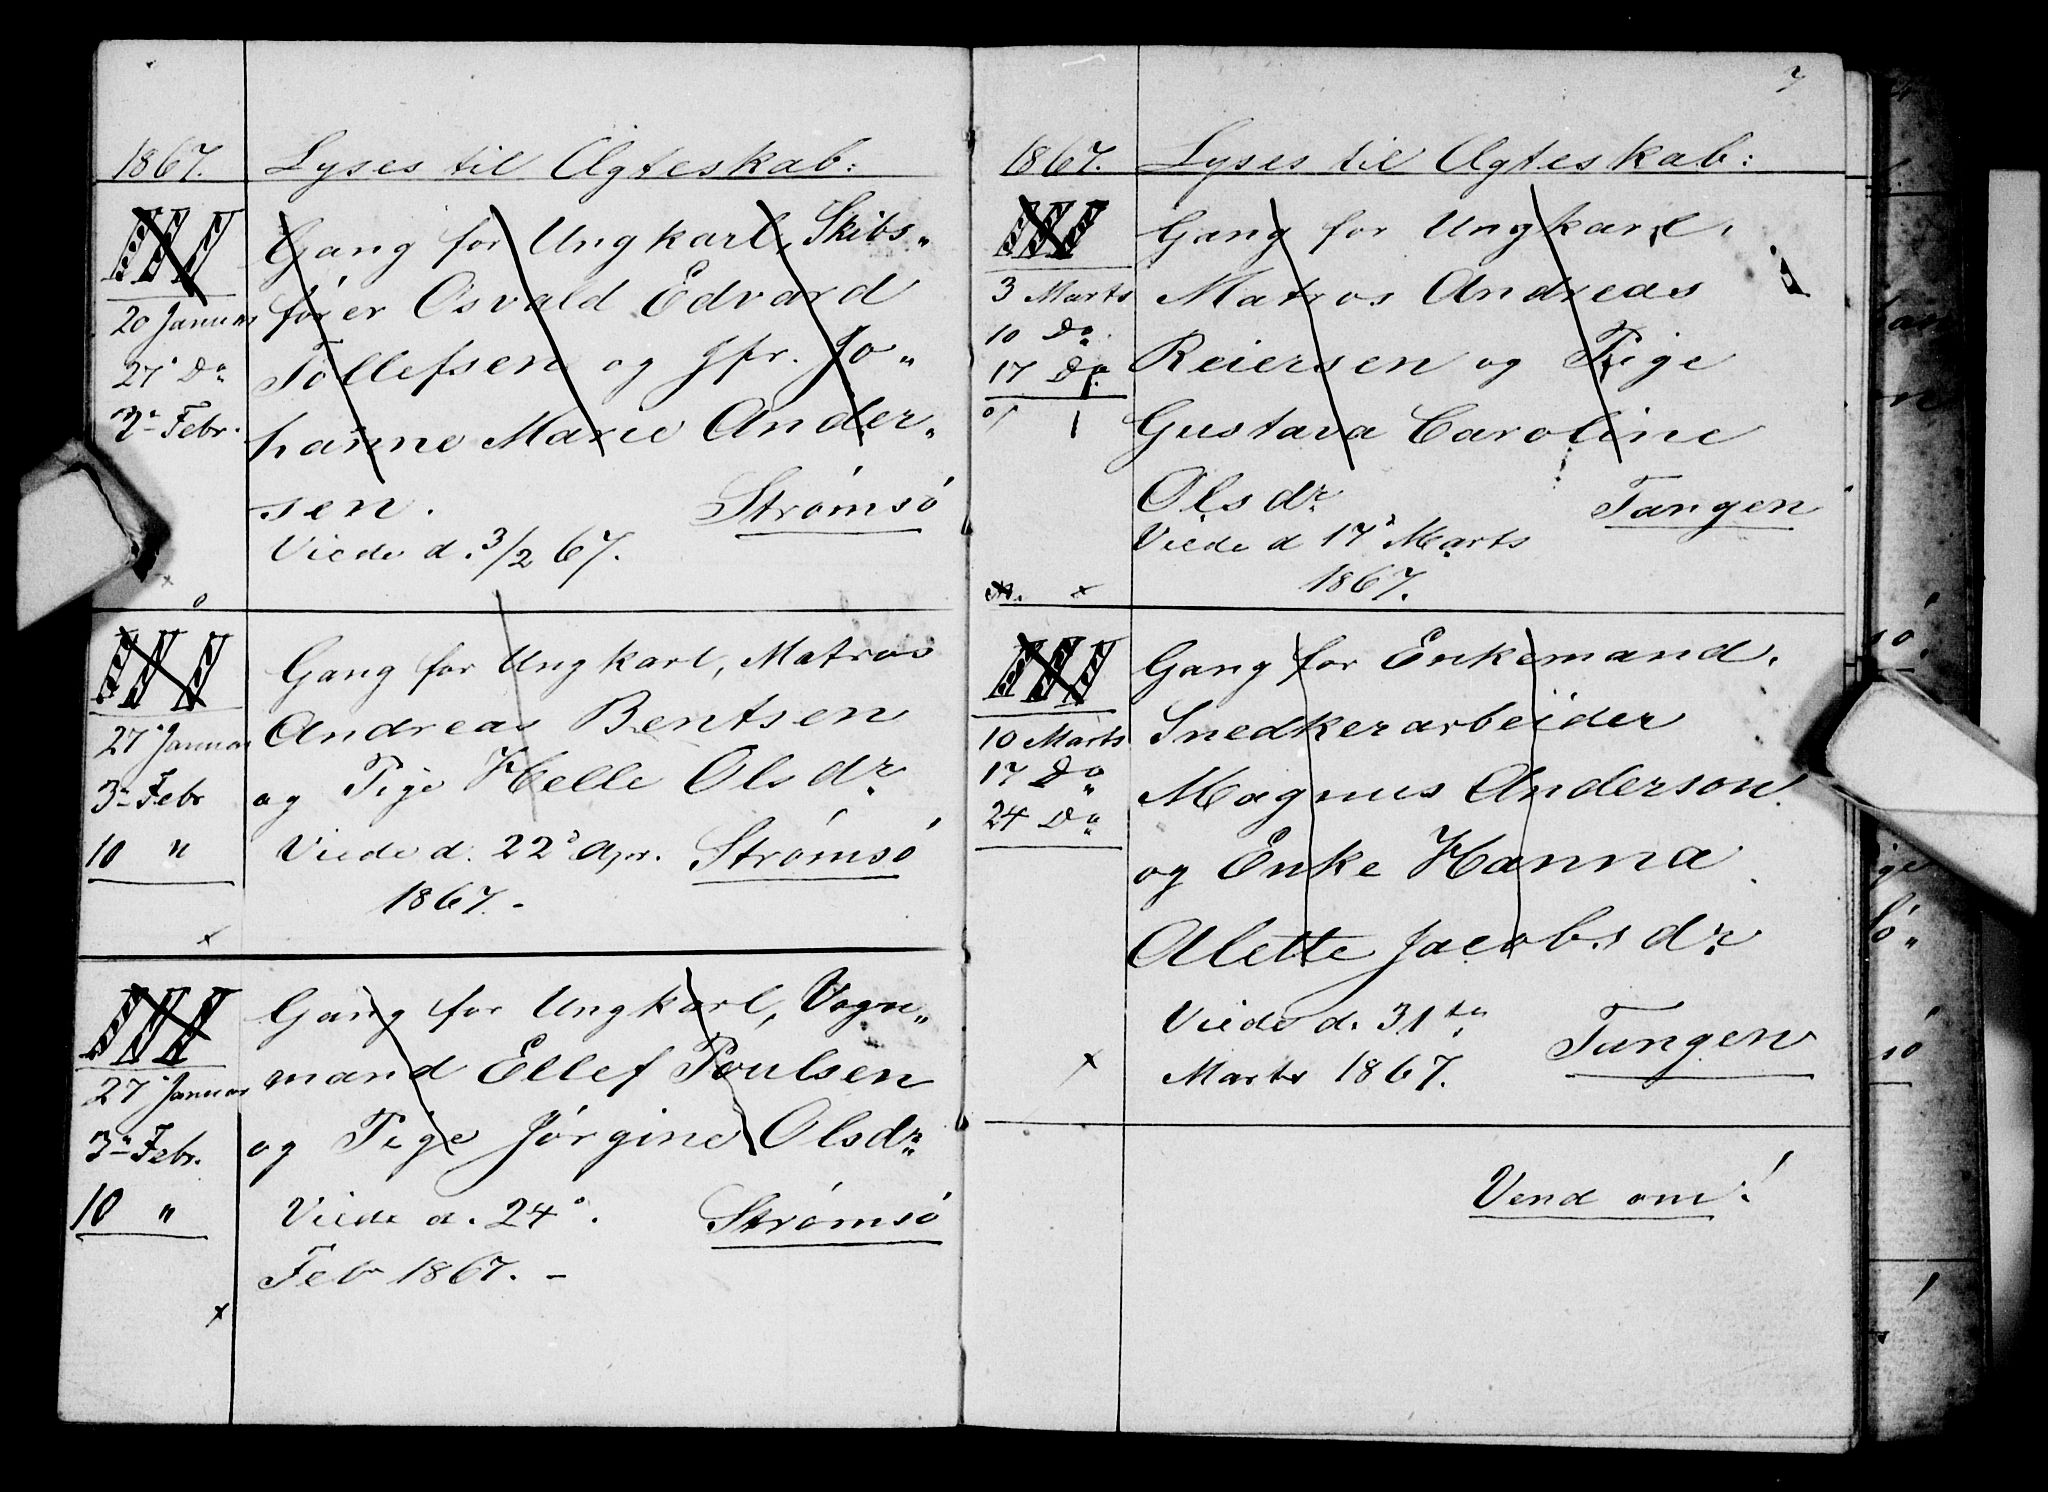 1867. Lyses til Ægteskab:
III Gang for Ungkarl, Skibs„
20 Januar fører Osvald Edvard
27 Do Tollefsen og Jfr. Jo„
3. Febr. hanne Marie Ander„
sen. Strømsö
Viede d. 3/2 67.
III Gang for Ungkarl, Matros
27 Januar Andreas Bentsen
3. Febr og Pige Helle Olsdr.
10 " Viede d. 22. Apr. Strømsö
1867. -
III Gang for Ungkarl, Vogn„
27 Januar mand Ellef Poulsen
3. Febr. og Pige Jørgine Olsdr.
10 " Viede d. 24. Strømsö
Febr 1867. -
1867. Lyses til Ægteskab:
III Gang for Ungkarl,
3 Marts Matros Andreas
10 Do Reiersen og Pige
17 Do Gustava Caroline
Olsdr. Tangen
Viede d 17. Marts
1867.
III Gang for Enkemand.
10 Marts Snedkerarbeider
17 Do Magnus Anderson
24 Do og Enke Hanna
Alette Jacobsdr.
Viede d. 31te Tangen
Marts 1867.
Vend om!